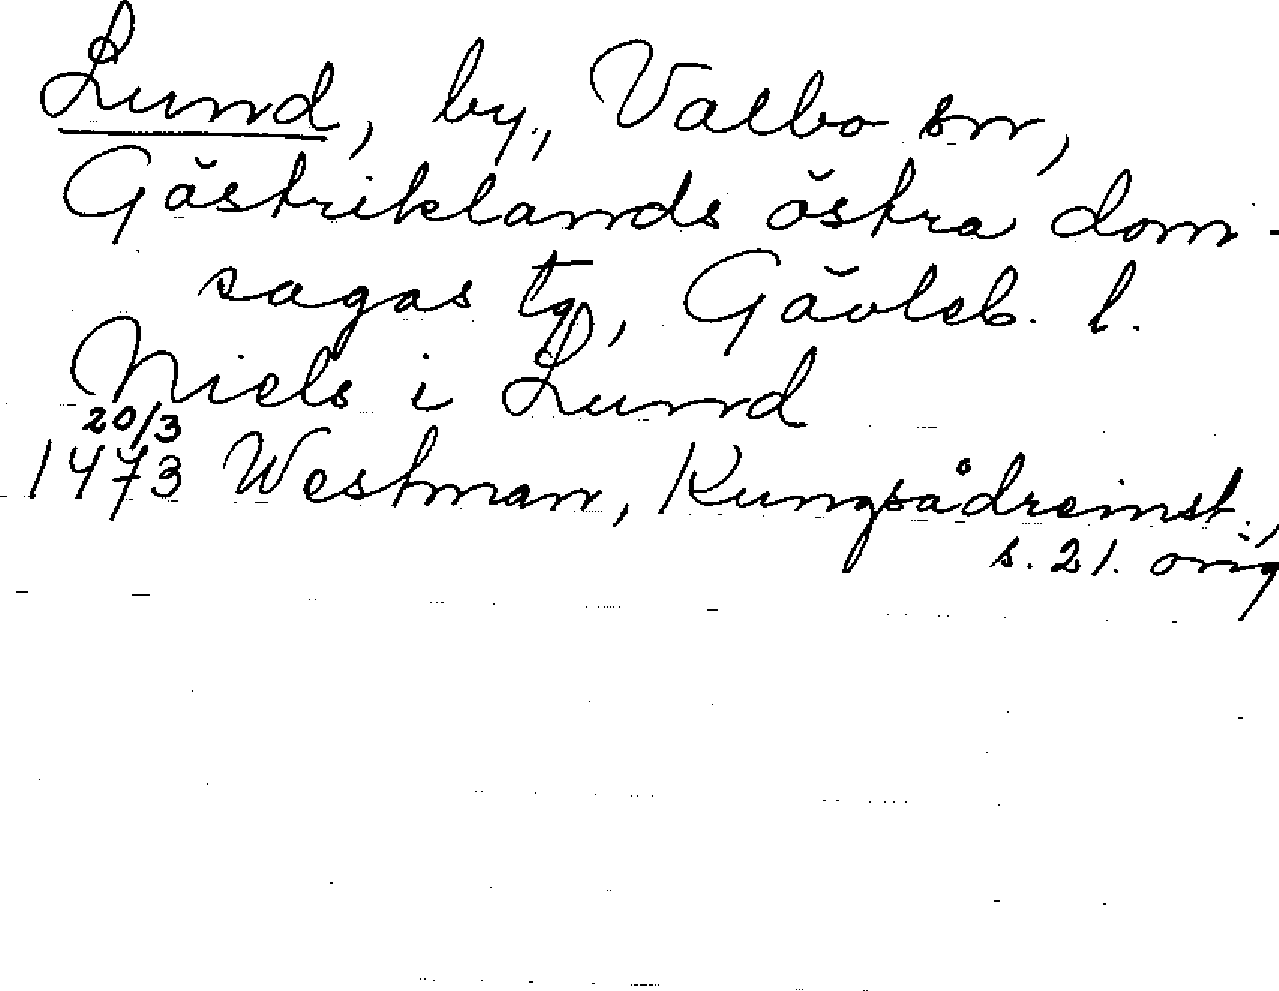 Lund, by, Valbo sn,
Gästriklands östra dom-
sagas tg, Gävleb. l.
Niels i Lund
20/3
1473 Westman, Kungsådreinst.,
s. 21. orig